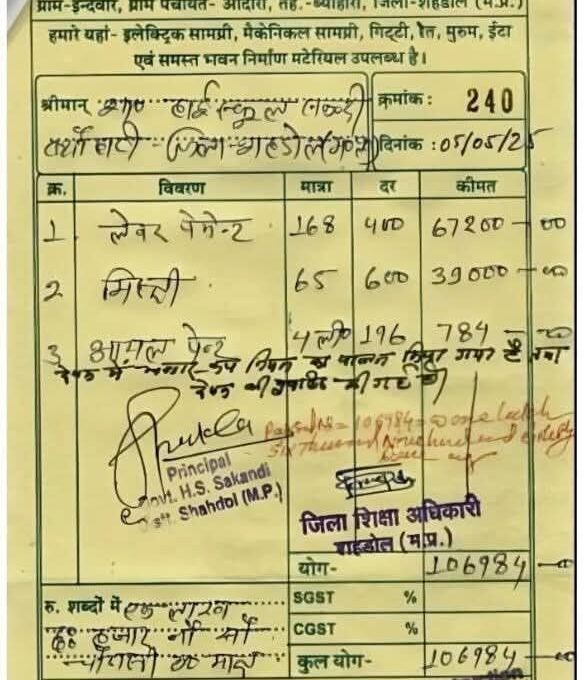 ग्राम-इन्दवार, ग्राम पंचायत- ओदारी, तह.-ब्यौहारी, जिला-शहडोल (म.प्र.)
हमारे यहां- इलेक्ट्रिक सामग्री, मैकेनिकल सामग्री, गिट्टी, रेत, मुरुम, ईटा
एवं समस्त भवन निर्माण मटेरियल उपलब्ध है।
श्रीमान् हाई स्कूल क्रमांक: 240
जिला-शहडोल दिनांक : 05/05/25
क्र. विवरण मात्रा दर कीमत
1 लेवर पेमेन्ट 168 400 67200 - 00
2 मिस्त्री 65 600 39000 - 00
3 आयल पेन्ट 4 ली० 196 784 - 00
का पालन किया गया है तथा
की गई है
Passed Rs = 106984 = One lakh
Six Thousand Nine hundred and eighty
Four
Principal
Govt. H.S. Sakandi
Distt. Shahdol (M.P.)
जिला शिक्षा अधिकारी
शहडोल (म.प्र.)
योग- 106984 - 00
रु. शब्दों में एक लाख SGST %
छः हजार नौ सौ CGST %
चौरासी रु० मात्र कुल योग- 106984 - 00